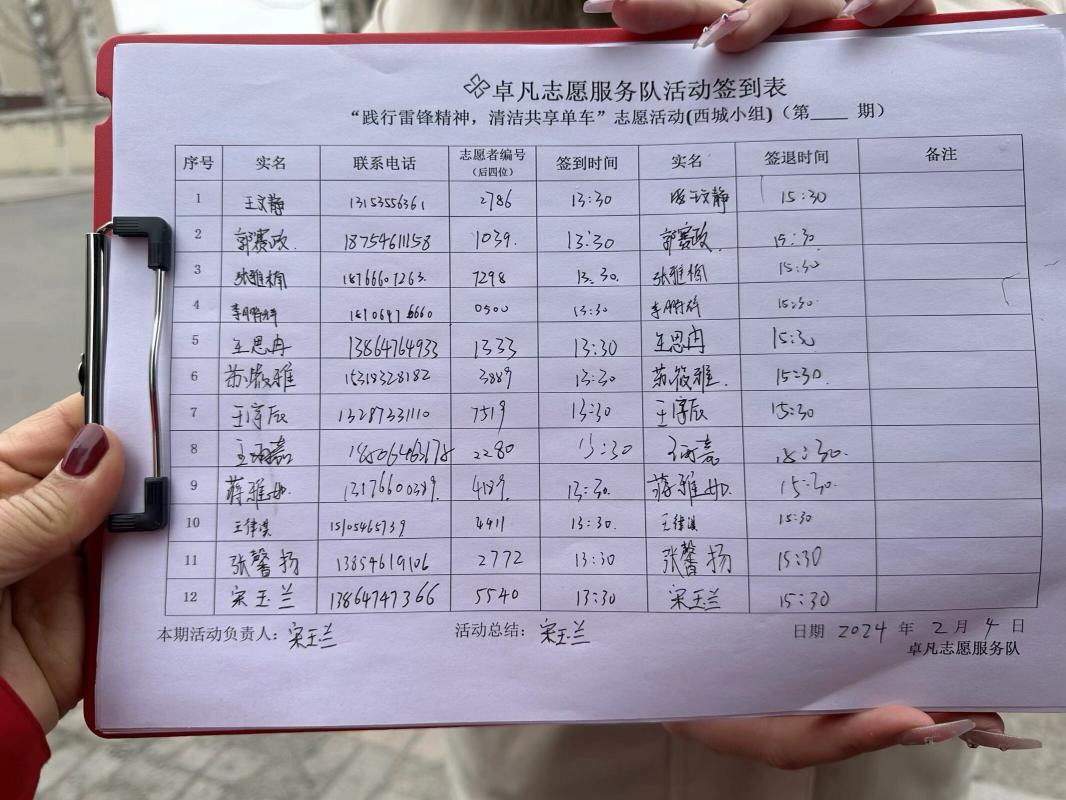 卓凡志愿服务队活动签到表
“践行雷锋精神，清洁共享单车”志愿活动(西城小组)（第____期）
序号 实名 联系电话 志愿者编号（后四位） 签到时间 实名 签退时间 备注
1 王文静 13153556361 2786 13:30 王文静 15:30
2 郭赛政 18754611158 1039. 13:30 郭赛政 15:30
3 张雅楠 18766607263 7298 13:30. 张雅楠 15:30
4 0500 13:30 15:30
5 王思冉 13864764933 1333 13:30 王思冉 15:30
6 苏筱雅 15318328182 3889 13:30 苏筱雅. 15:30.
7 王淳辰 13287331110 7519 13:30 王淳辰 15:30
8 2280 13:30 15:30.
9 蒋雅如. 13176600389. 4189. 13:30. 蒋雅如. 15:30.
10 王律淇 15105465739 4911 13:30. 王律淇 15:30
11 张馨扬 13854619106 2772 13:30 张馨扬 15:30
12 宋玉兰 13864747366 5540 13:30 宋玉兰 15:30
本期活动负责人：宋玉兰 活动总结：宋玉兰 日期 2024 年 2 月 4 日
卓凡志愿服务队